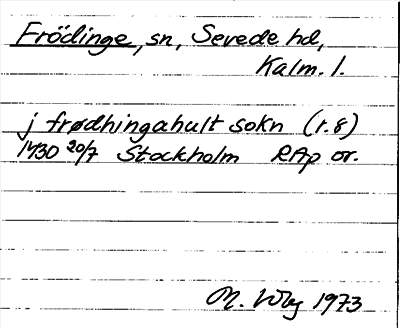 Frödinge, sn, Sevede hd,
Kalm. l.
j frødhingahult sokn (r. 8)
1430 20/7 Stockholm RAp or.
M. 1973